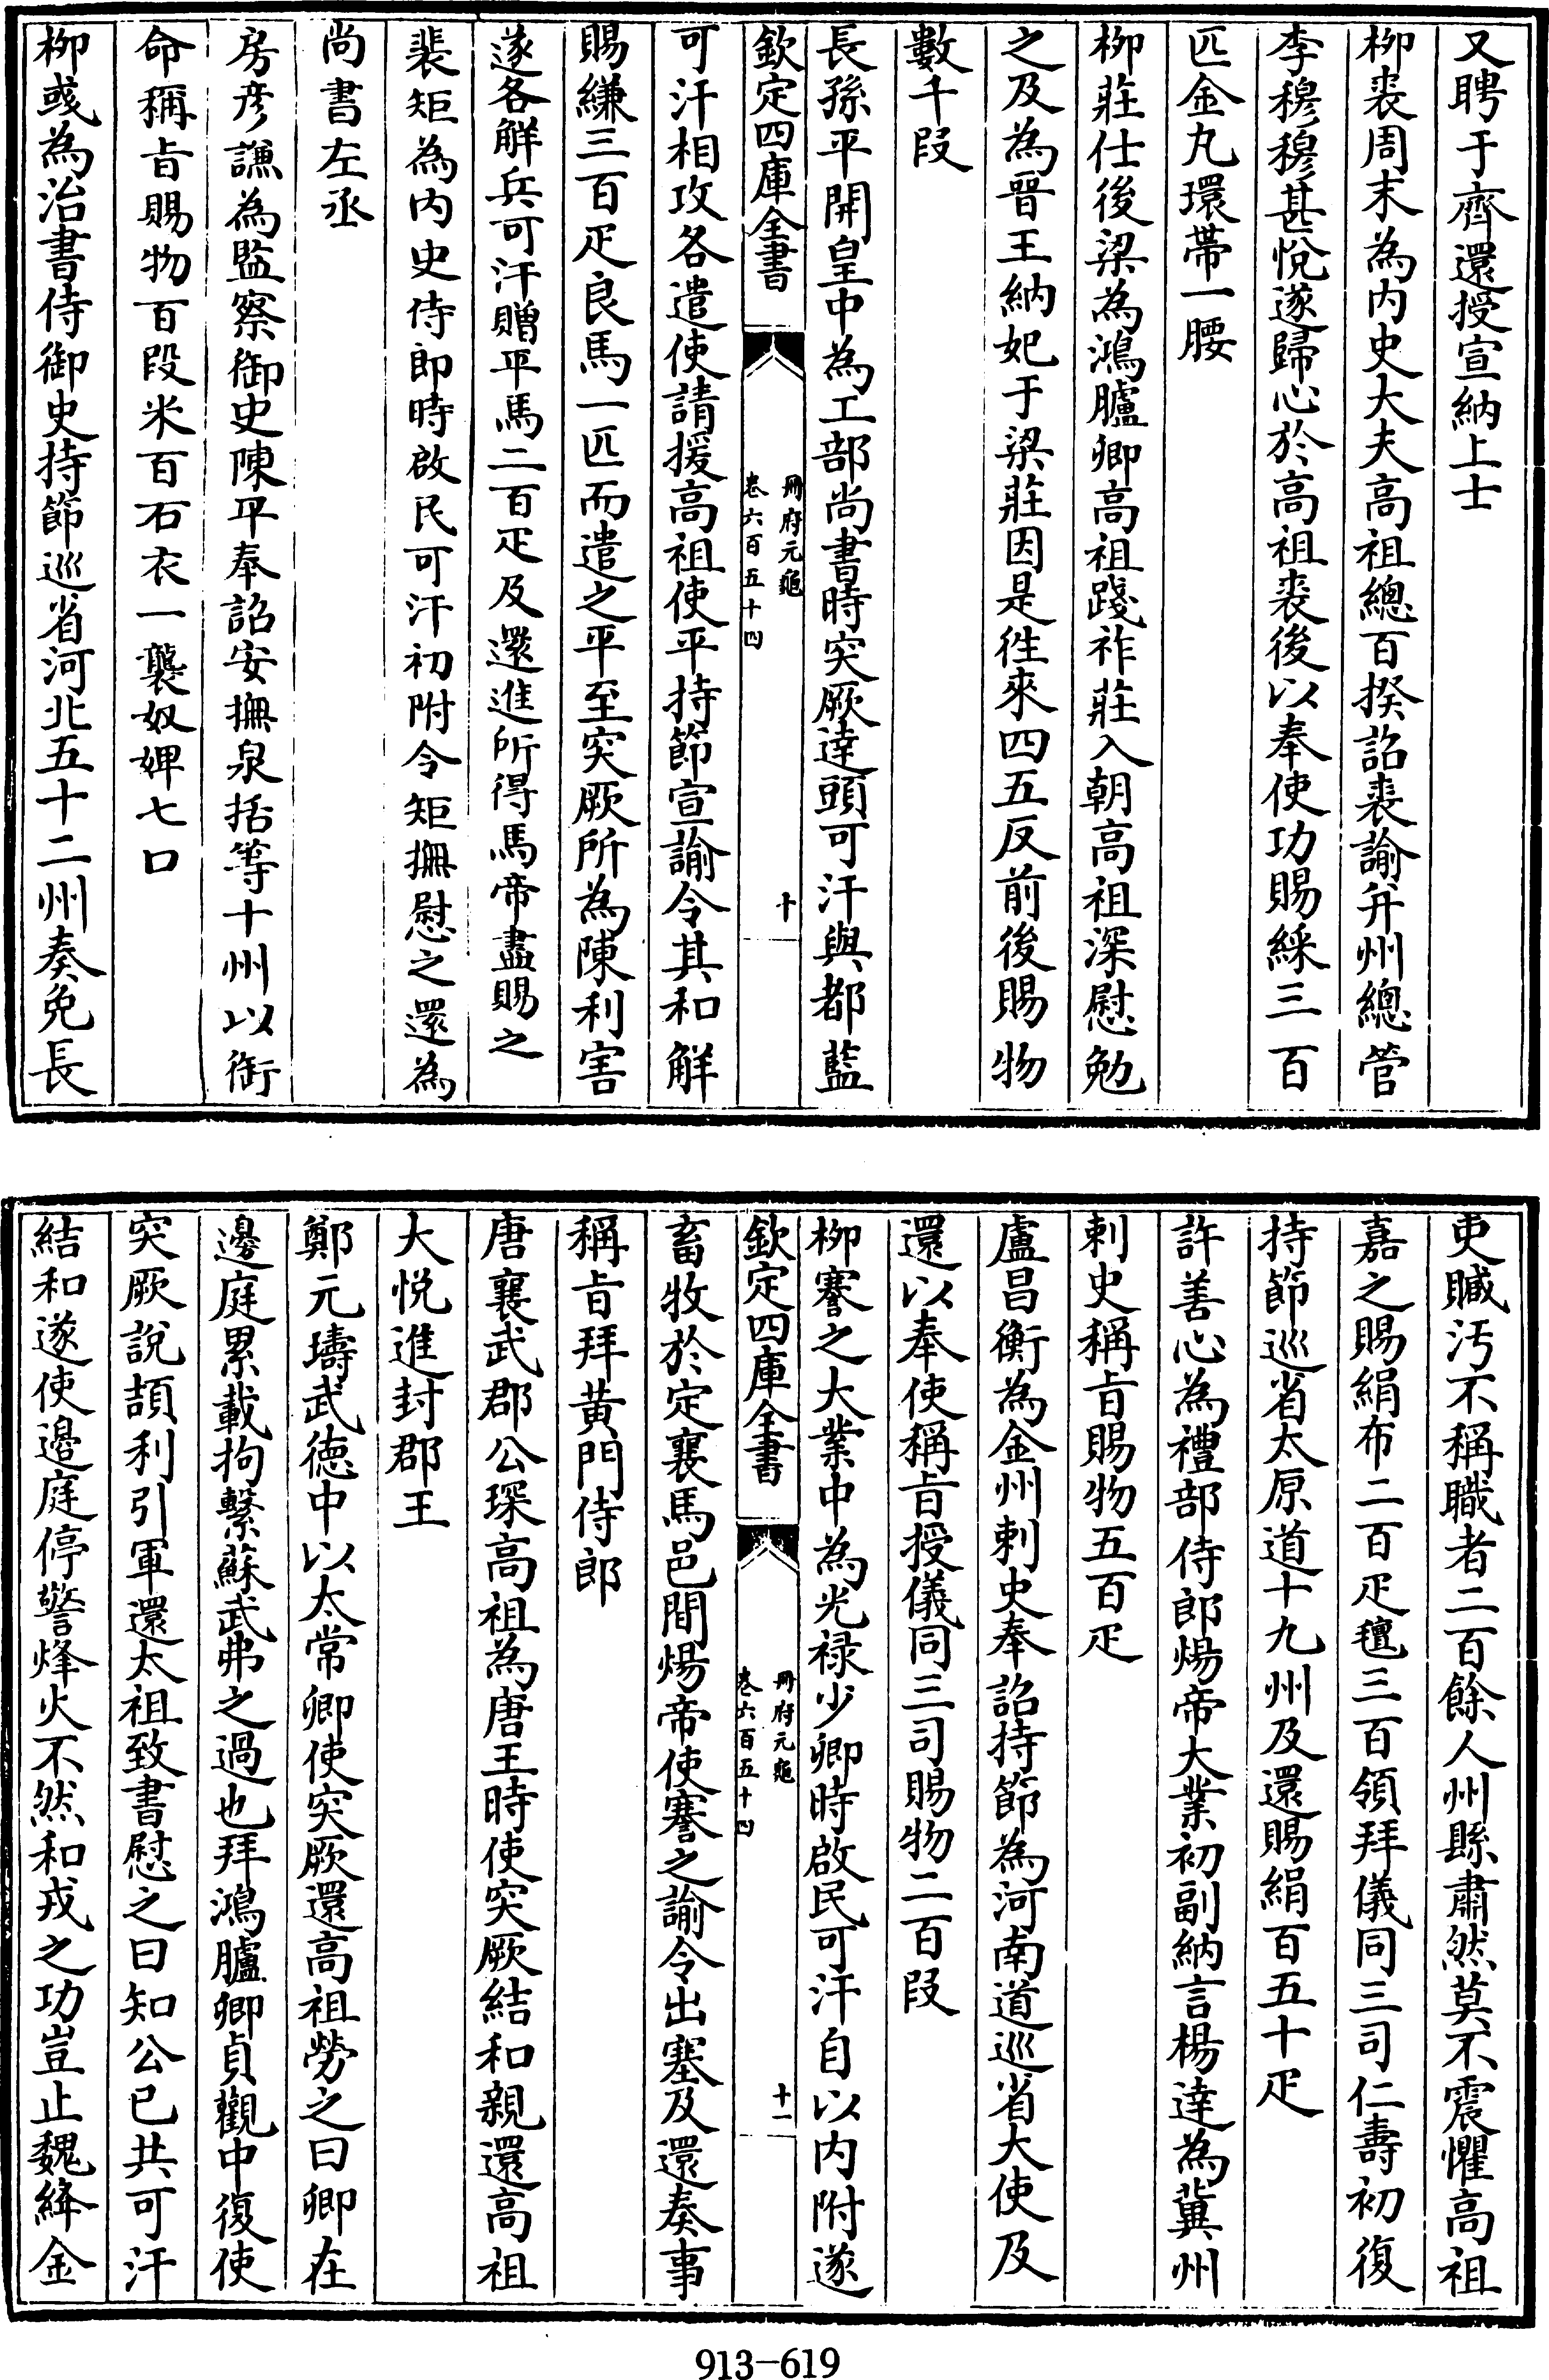 又聘于齊還授宣納上士
柳裘周末為内史大夫高祖總百揆詔裘諭并州總管
李穆穆甚悅遂歸心於高祖裘後以奉使功賜綵三百
匹金九環帶一腰
柳莊仕後梁為鴻臚卿高祖踐祚莊入朝高祖深慰勉
之及為晉王納妃于梁莊因是徃來四五反前後賜物
數千段
長孫平開皇中為工部尚書時突厥達頭可汗與都藍
欽定四庫全書
冊府元龜
卷六百五十四
十
可汗相攻各遣使請援高祖使平持節宣諭令其和解
賜縑三百疋良馬一匹而遣之平至突厥所為陳利害
遂各解兵可汗贈平馬二百疋及還進所得馬帝盡賜之
裴矩為内史侍郎時啟民可汗初附令矩撫慰之還為
尚書左丞
房彦謙為監察御史陳平奉詔安撫泉括等十州以銜
命稱㫖賜物百段米百石衣一襲奴婢七口
柳彧為治書侍御史持節巡省河北五十二州奏免長
吏贓汚不稱職者二百餘人州縣肅然莫不震懼高祖
嘉之賜絹布二百疋氊三百領拜儀同三司仁壽初復
持節巡省太原道十九州及還賜絹百五十疋
許善心為禮部侍郎煬帝大業初副納言楊達為冀州
刺史稱㫖賜物五百疋
盧昌衡為金州刺史奉詔持節為河南道巡省大使及
還以奉使稱㫖授儀同三司賜物二百段
柳謇之大業中為光禄少卿時啟民可汗自以内附遂
欽定四庫全書
冊府元龜
卷六百五十四
十一
畜牧於定襄馬邑間煬帝使謇之諭令出塞及還奏事
稱㫖拜黄門侍郎
唐襄武郡公琛高祖為唐王時使突厥結和親還高祖
大悦進封郡王
鄭元璹武德中以太常卿使突厥還高祖勞之曰卿在
邊庭累載拘繫蘇武弗之過也拜鴻臚卿貞觀中復使
突厥說頡利引軍還太祖致書慰之曰知公已共可汗
結和遂使邊庭停警烽火不然和戎之功豈止魏絳金
913-619